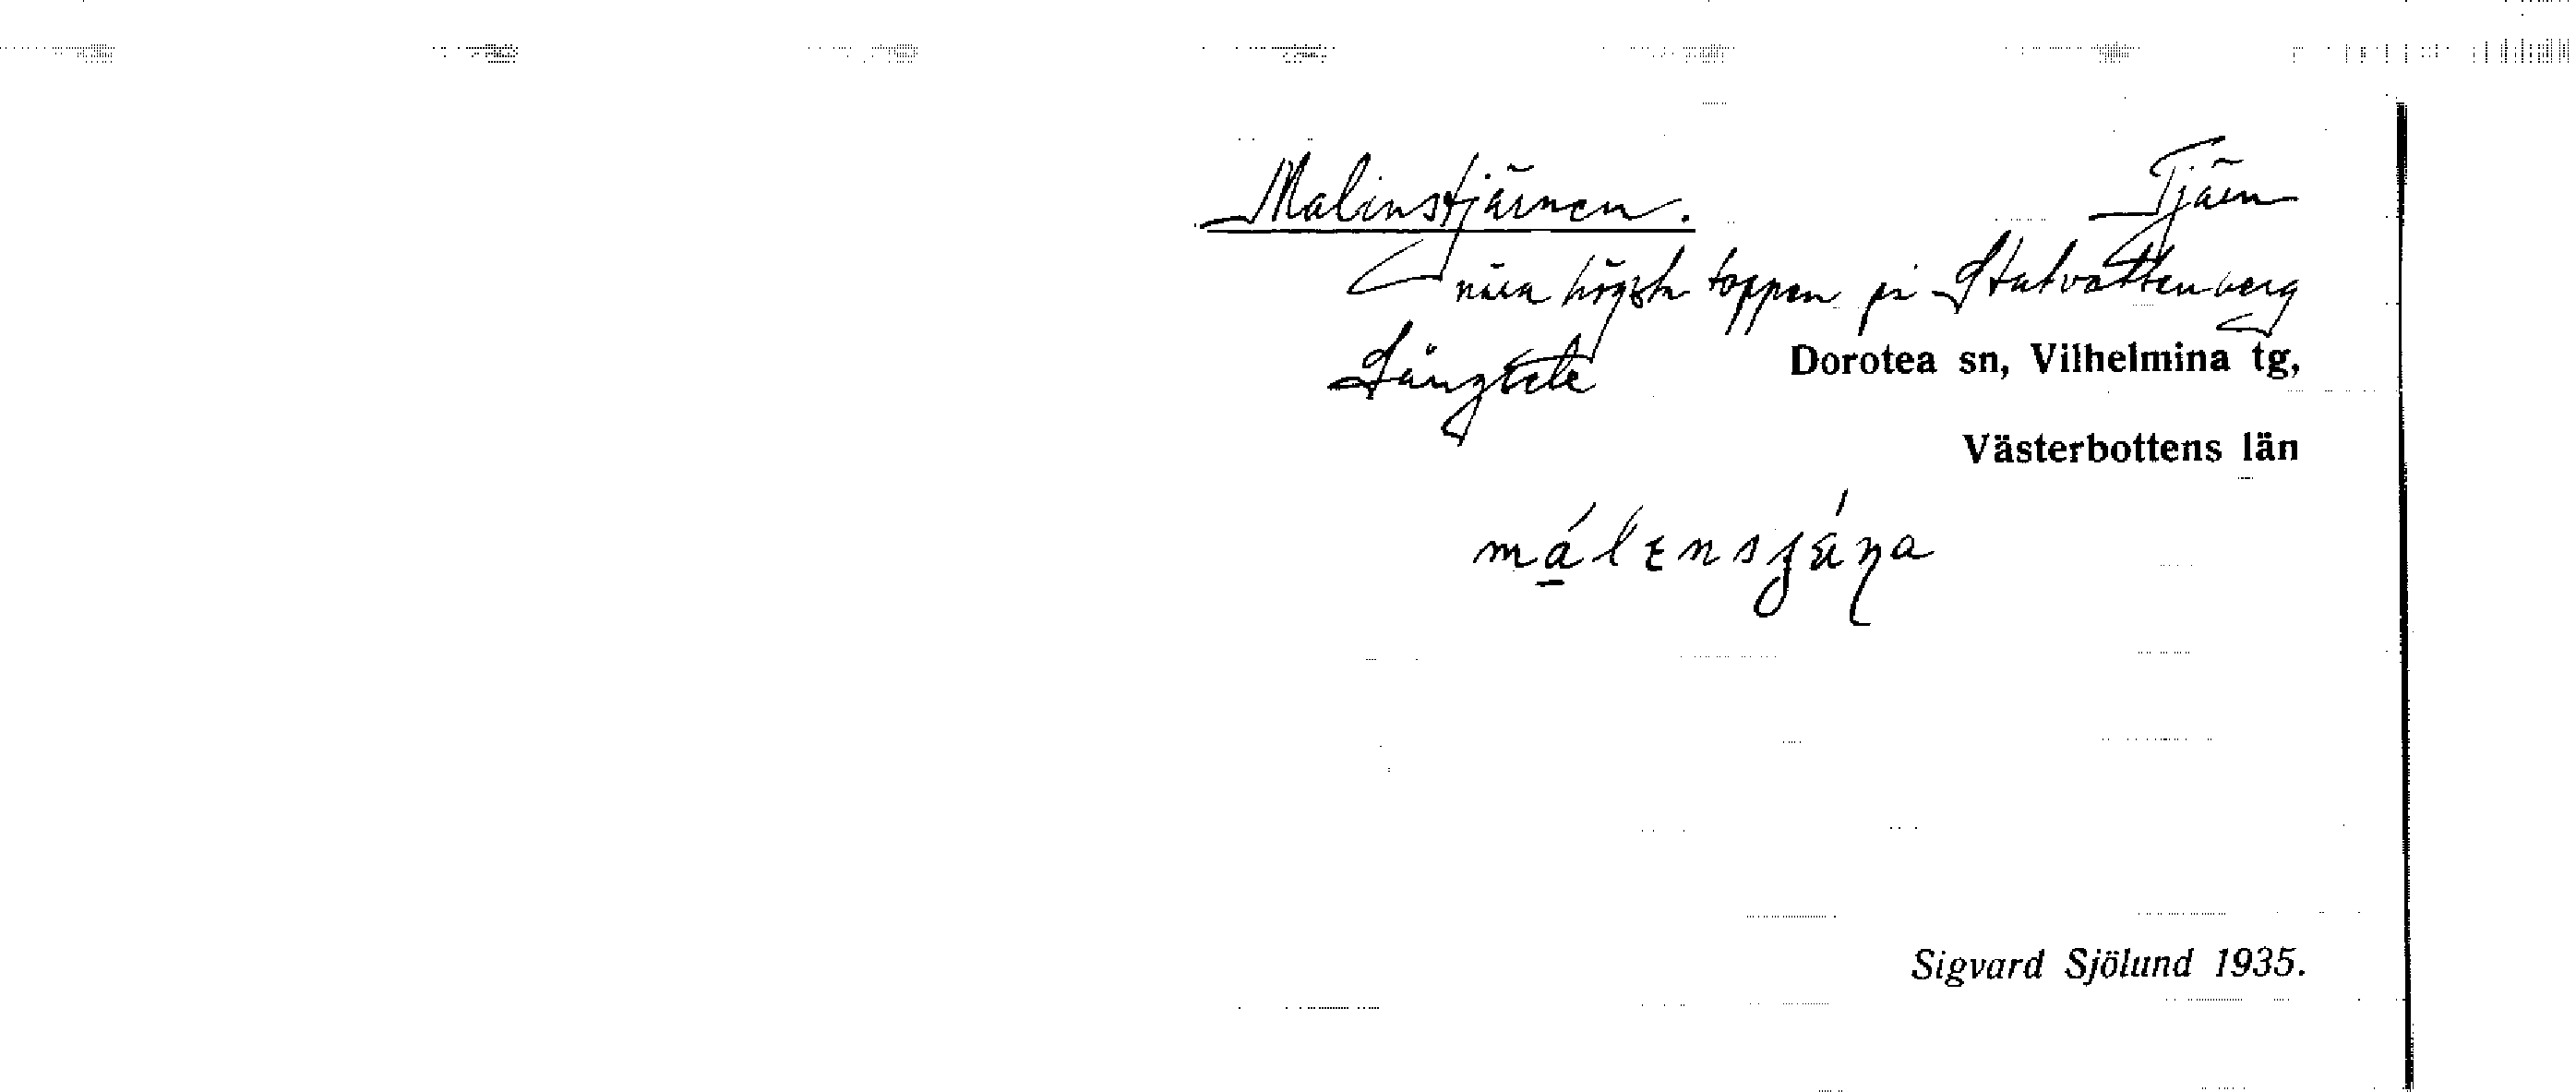 Malinstjärnen. Tjärn
nära högste toppen på Stutvattenberg
Långsele Dorotea sn, Vilhelmina tg,
Västerbottens län
Sigvard Sjölund 1935.